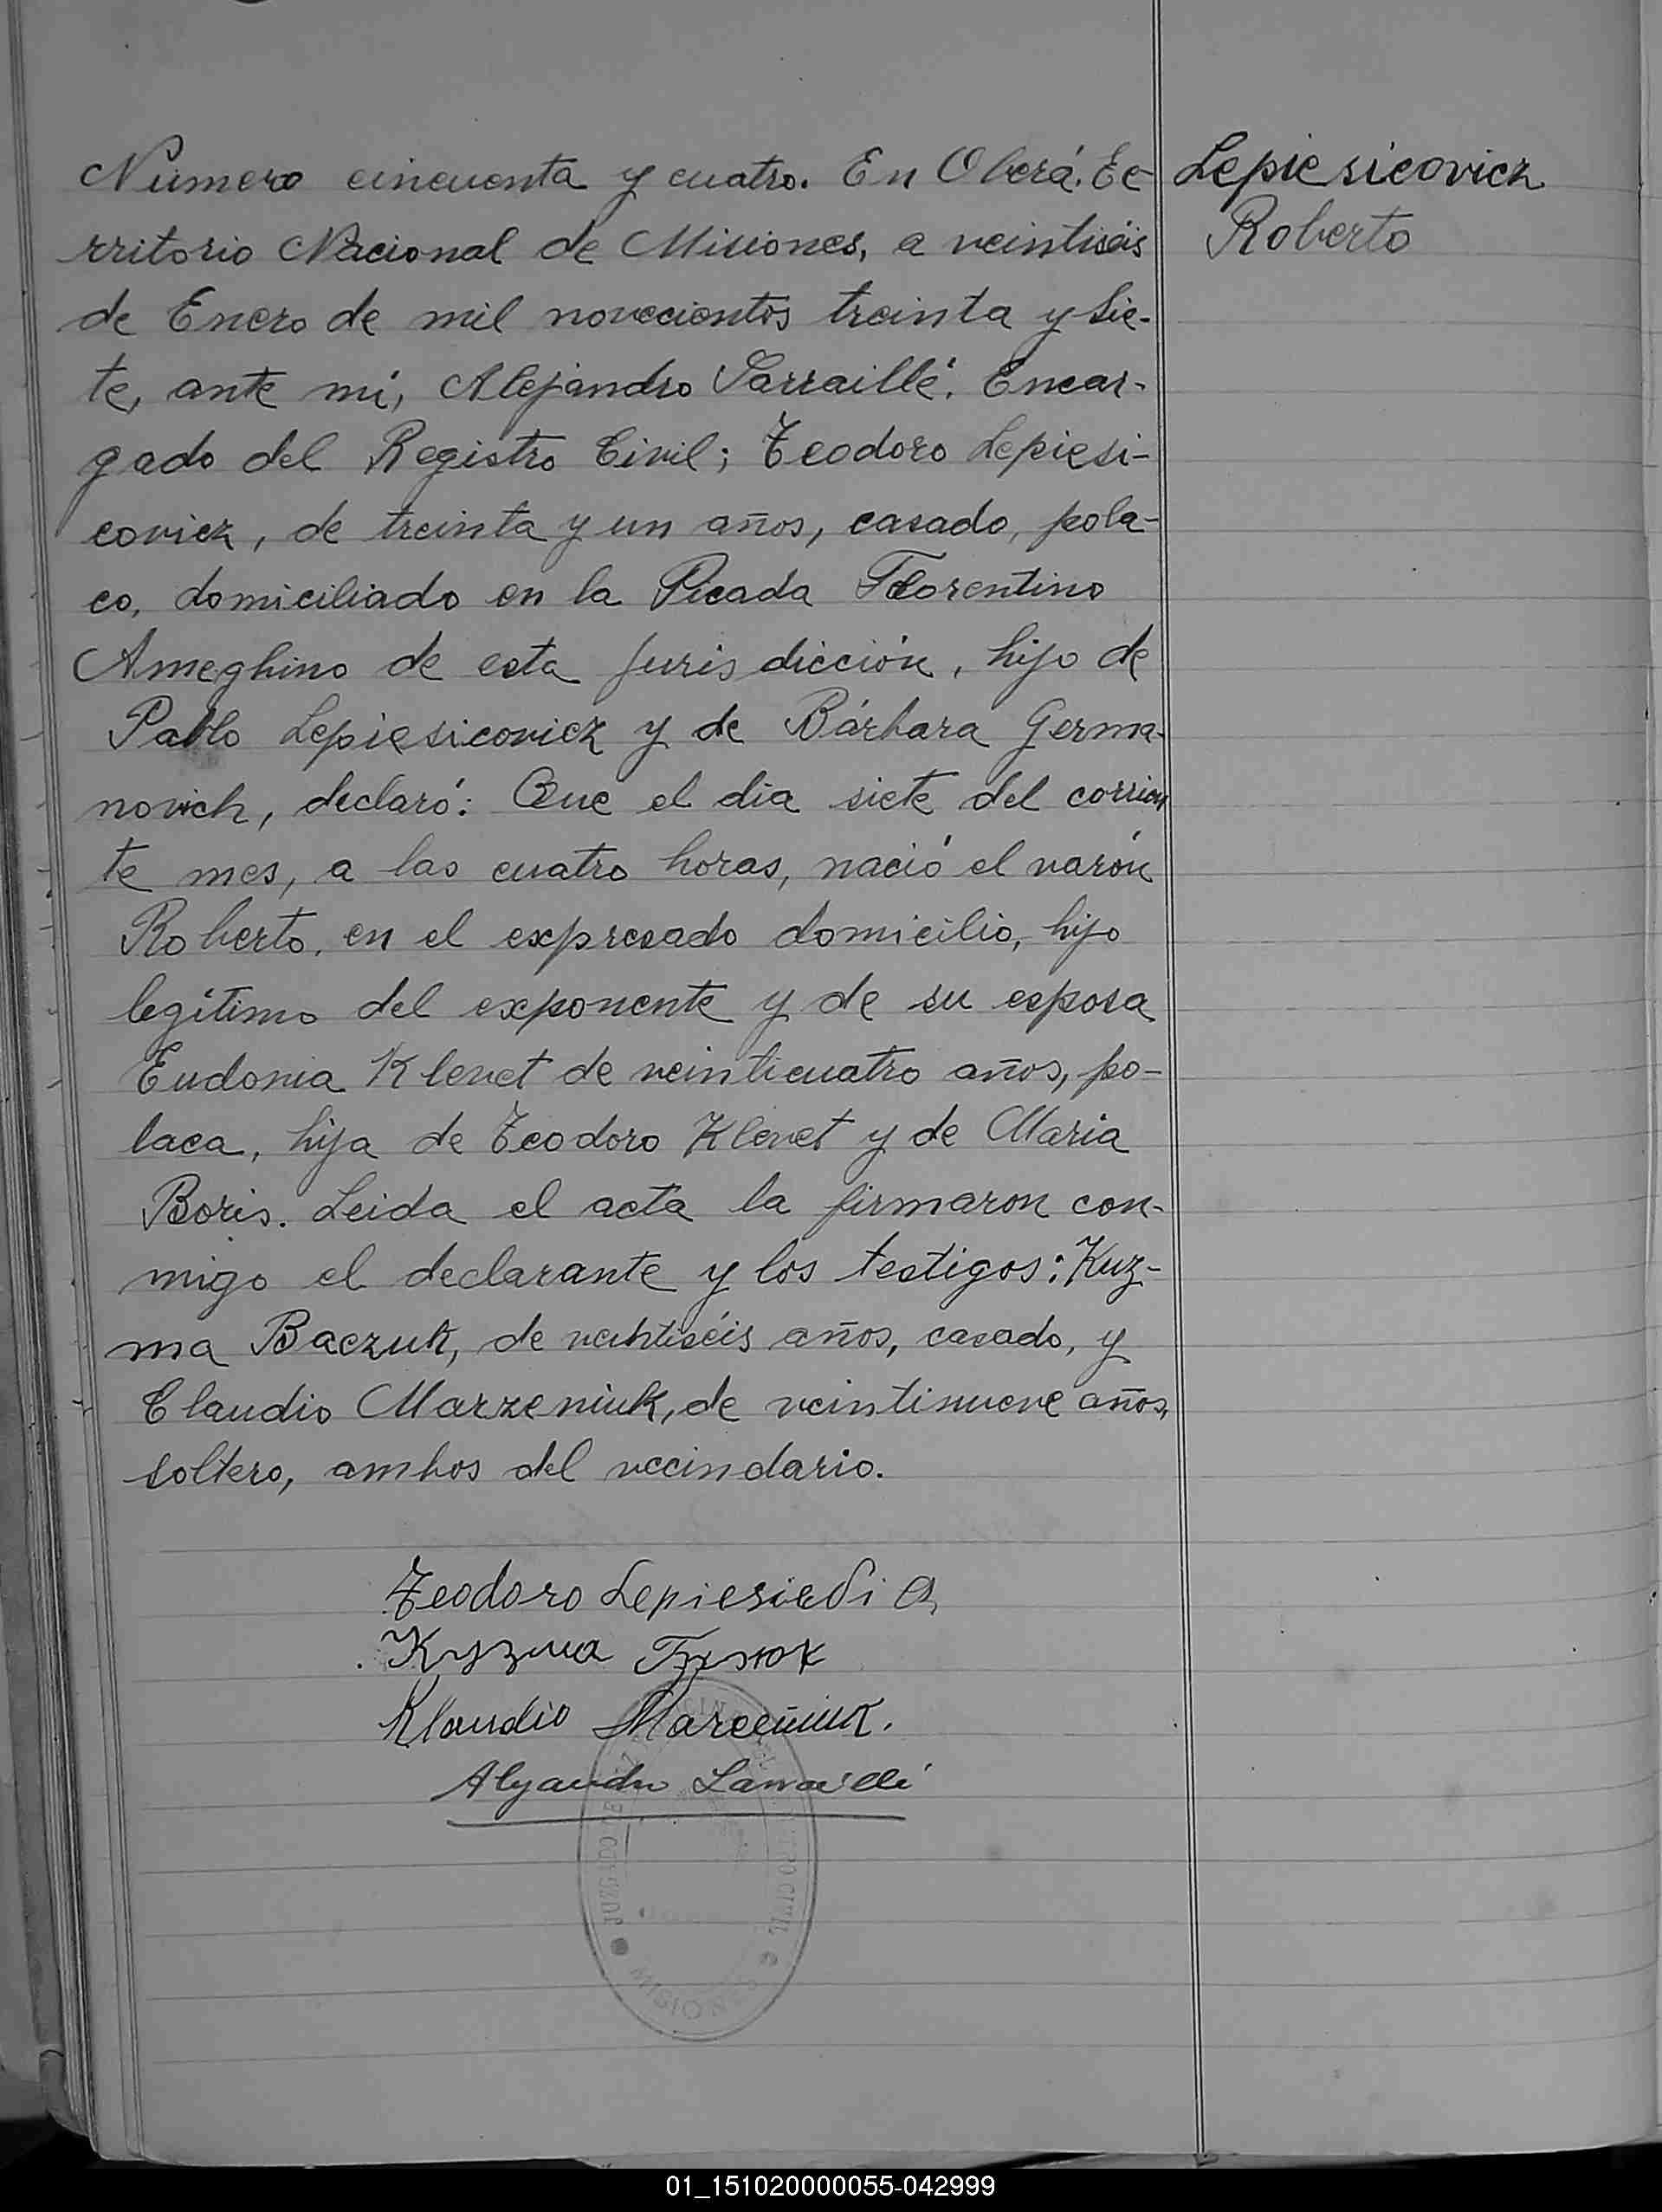 Número cincuenta y cuatro. En Oberá, Te-
rritorio Nacional de Misiones, a veintiséis
de Enero de mil novecientos treinta y sie-
te, ante mí, Alejandro Sarraillé, Encar-
gado del Registro Civil; Teodoro Lepiesi-
covicz, de treinta y un años, casado, pola-
co, domiciliado en la Picada Florentino
Ameghino de esta jurisdicción, hijo de
Pablo Lepiesicovicz y de Bárbara Germa-
novich, declaró: Que el dia siete del corrien
te mes, a las cuatro horas, nació el varón
Roberto, en el expresado domicilio, hijo
legítimo del exponente y de su esposa
Eudonia Klevet de veinticuatro años, po-
laca, hija de Teodoro Klevet y de Maria
Boris. Leida el acta la firmaron con-
migo el declarante y los testigos: Kuz-
ma Baczuk, de veintiséis años, casado, y
Claudio Marzeniuk, de veintinueve años,
soltero, ambos del vecindario.
Lepiesicovicz
Roberto
Teodoro
Кузма
Klaudio
Alejandro Sarraillé
REGISTRO CIVIL
MISIONES
01_151020000055-042999